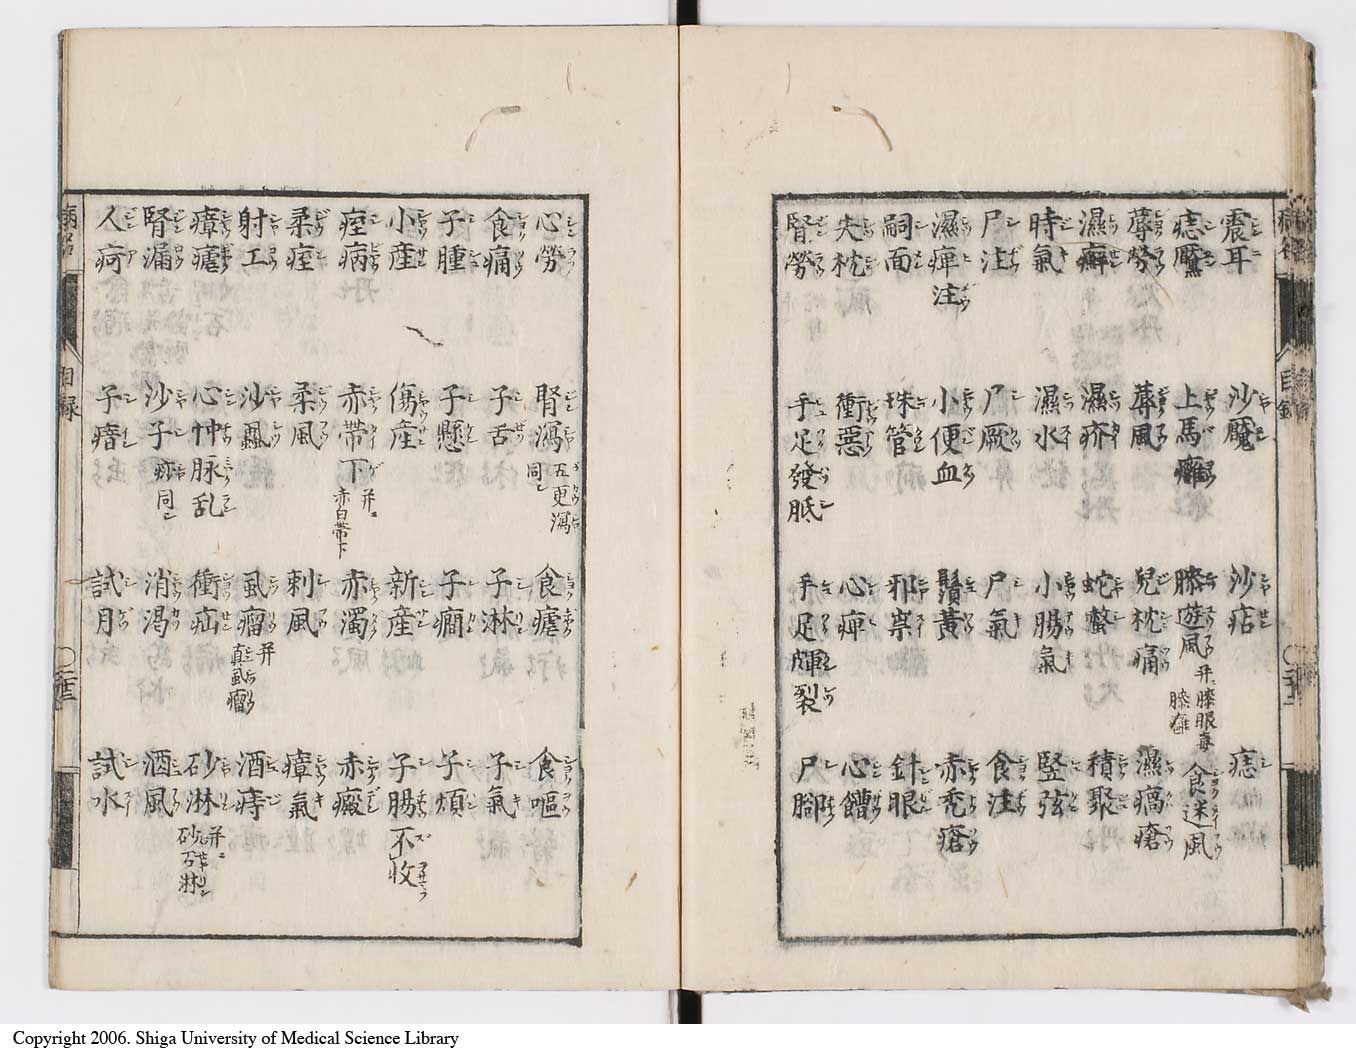 震耳 沙魘 沙痁 痣
痣黶 上馬癰 膝遊風 并ニ膝眼毒 膝癰 食迷風
蓐勞 蓐風 兒枕痛 濕瘑瘡
濕癬 濕疥 蛇螫 積聚
時氣 濕水 小腸氣 竪弦
尸注 尸厥 尸氣 食注
濕痺注 小便血 鬚黃 赤禿瘡
嗣面 珠管 邪祟 針眼
失枕 衝惡 心痺 心饐
腎勞 手足發胝 手足皸裂 尸腳
心勞 腎瀉 五更瀉同シ 食瘧 食嘔
食痛 子舌 子淋 子氣
子腫 子懸 子癇 子煩
小產 傷產 新產 子腸不收
痙病 赤帶下 并ニ赤白帶下 赤濁 赤癜
柔痙 柔風 刺風 瘴氣
射工 沙蝨 虱瘤 并真虱瘤 酒痔
瘴瘧 心忡脉乱 衝疝 砂淋 并ニ砂石淋
腎漏 沙子 痧同シ 消渴 酒風
人疴 子瘖 試月 試水
病名
目錄
〇二十二
Copyright 2006. Shiga University of Medical Science Library